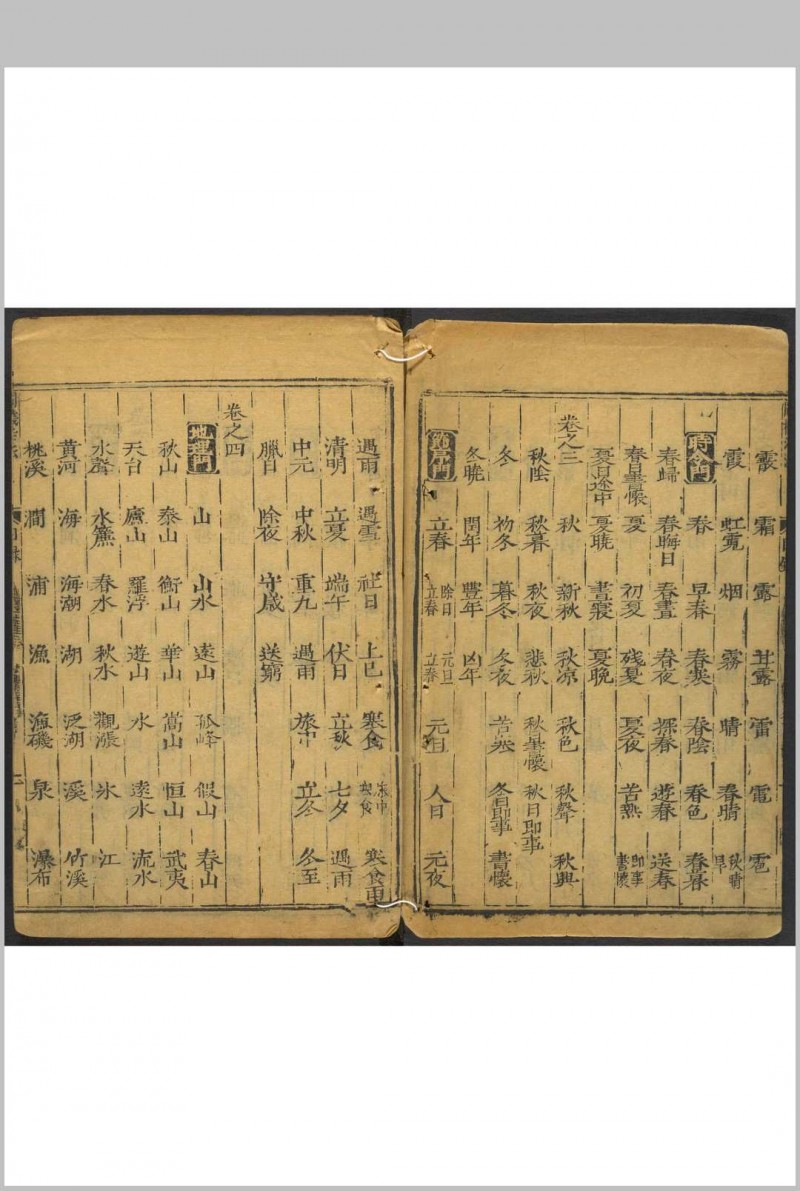 霞 霜 露 甘露 雷 電 雹
霞 虹霓 烟 霧 晴 春晴 秋晴 旱
時令門 春 早春 春寒 春陰 春色 春暮
春歸 春晦日 春晝 春夜 探春 遊春 送春
春日書懷 夏 初夏 殘夏 夏夜 苦熱 即事 書懷
夏日途中 夏曉 晝寢 夏晚
卷之三 秋 新秋 秋凉 秋色 秋聲 秋興
秋陰 秋暮 秋夜 悲秋 秋日書懷 秋日即事
冬 初冬 暮冬 冬夜 苦寒 冬日即事 書懷
冬曉 閏年 豐年 凶年
節序門 立春 除日立春 元旦立春 元旦 人日 元夜
遇雨 遇雪 社日 上巳 寒食 旅中寒食 寒食雨
清明 立夏 端午 伏日 立秋 七夕 遇雨
中元 中秋 重九 遇雨 旅中 立冬 冬至
臘日 除夜 守歲 送窮
卷之四
地理門 山 山水 遠山 孤峰 假山 春山
秋山 泰山 衡山 華山 嵩山 恒山 武夷
天台 廬山 羅浮 遊山 水 遠水 流水
水聲 水簾 春水 秋水 觀漲 氷 江
黄河 海 海潮 湖 泛湖 溪 竹溪
桃溪 澗 浦 漁 漁磯 泉 瀑布